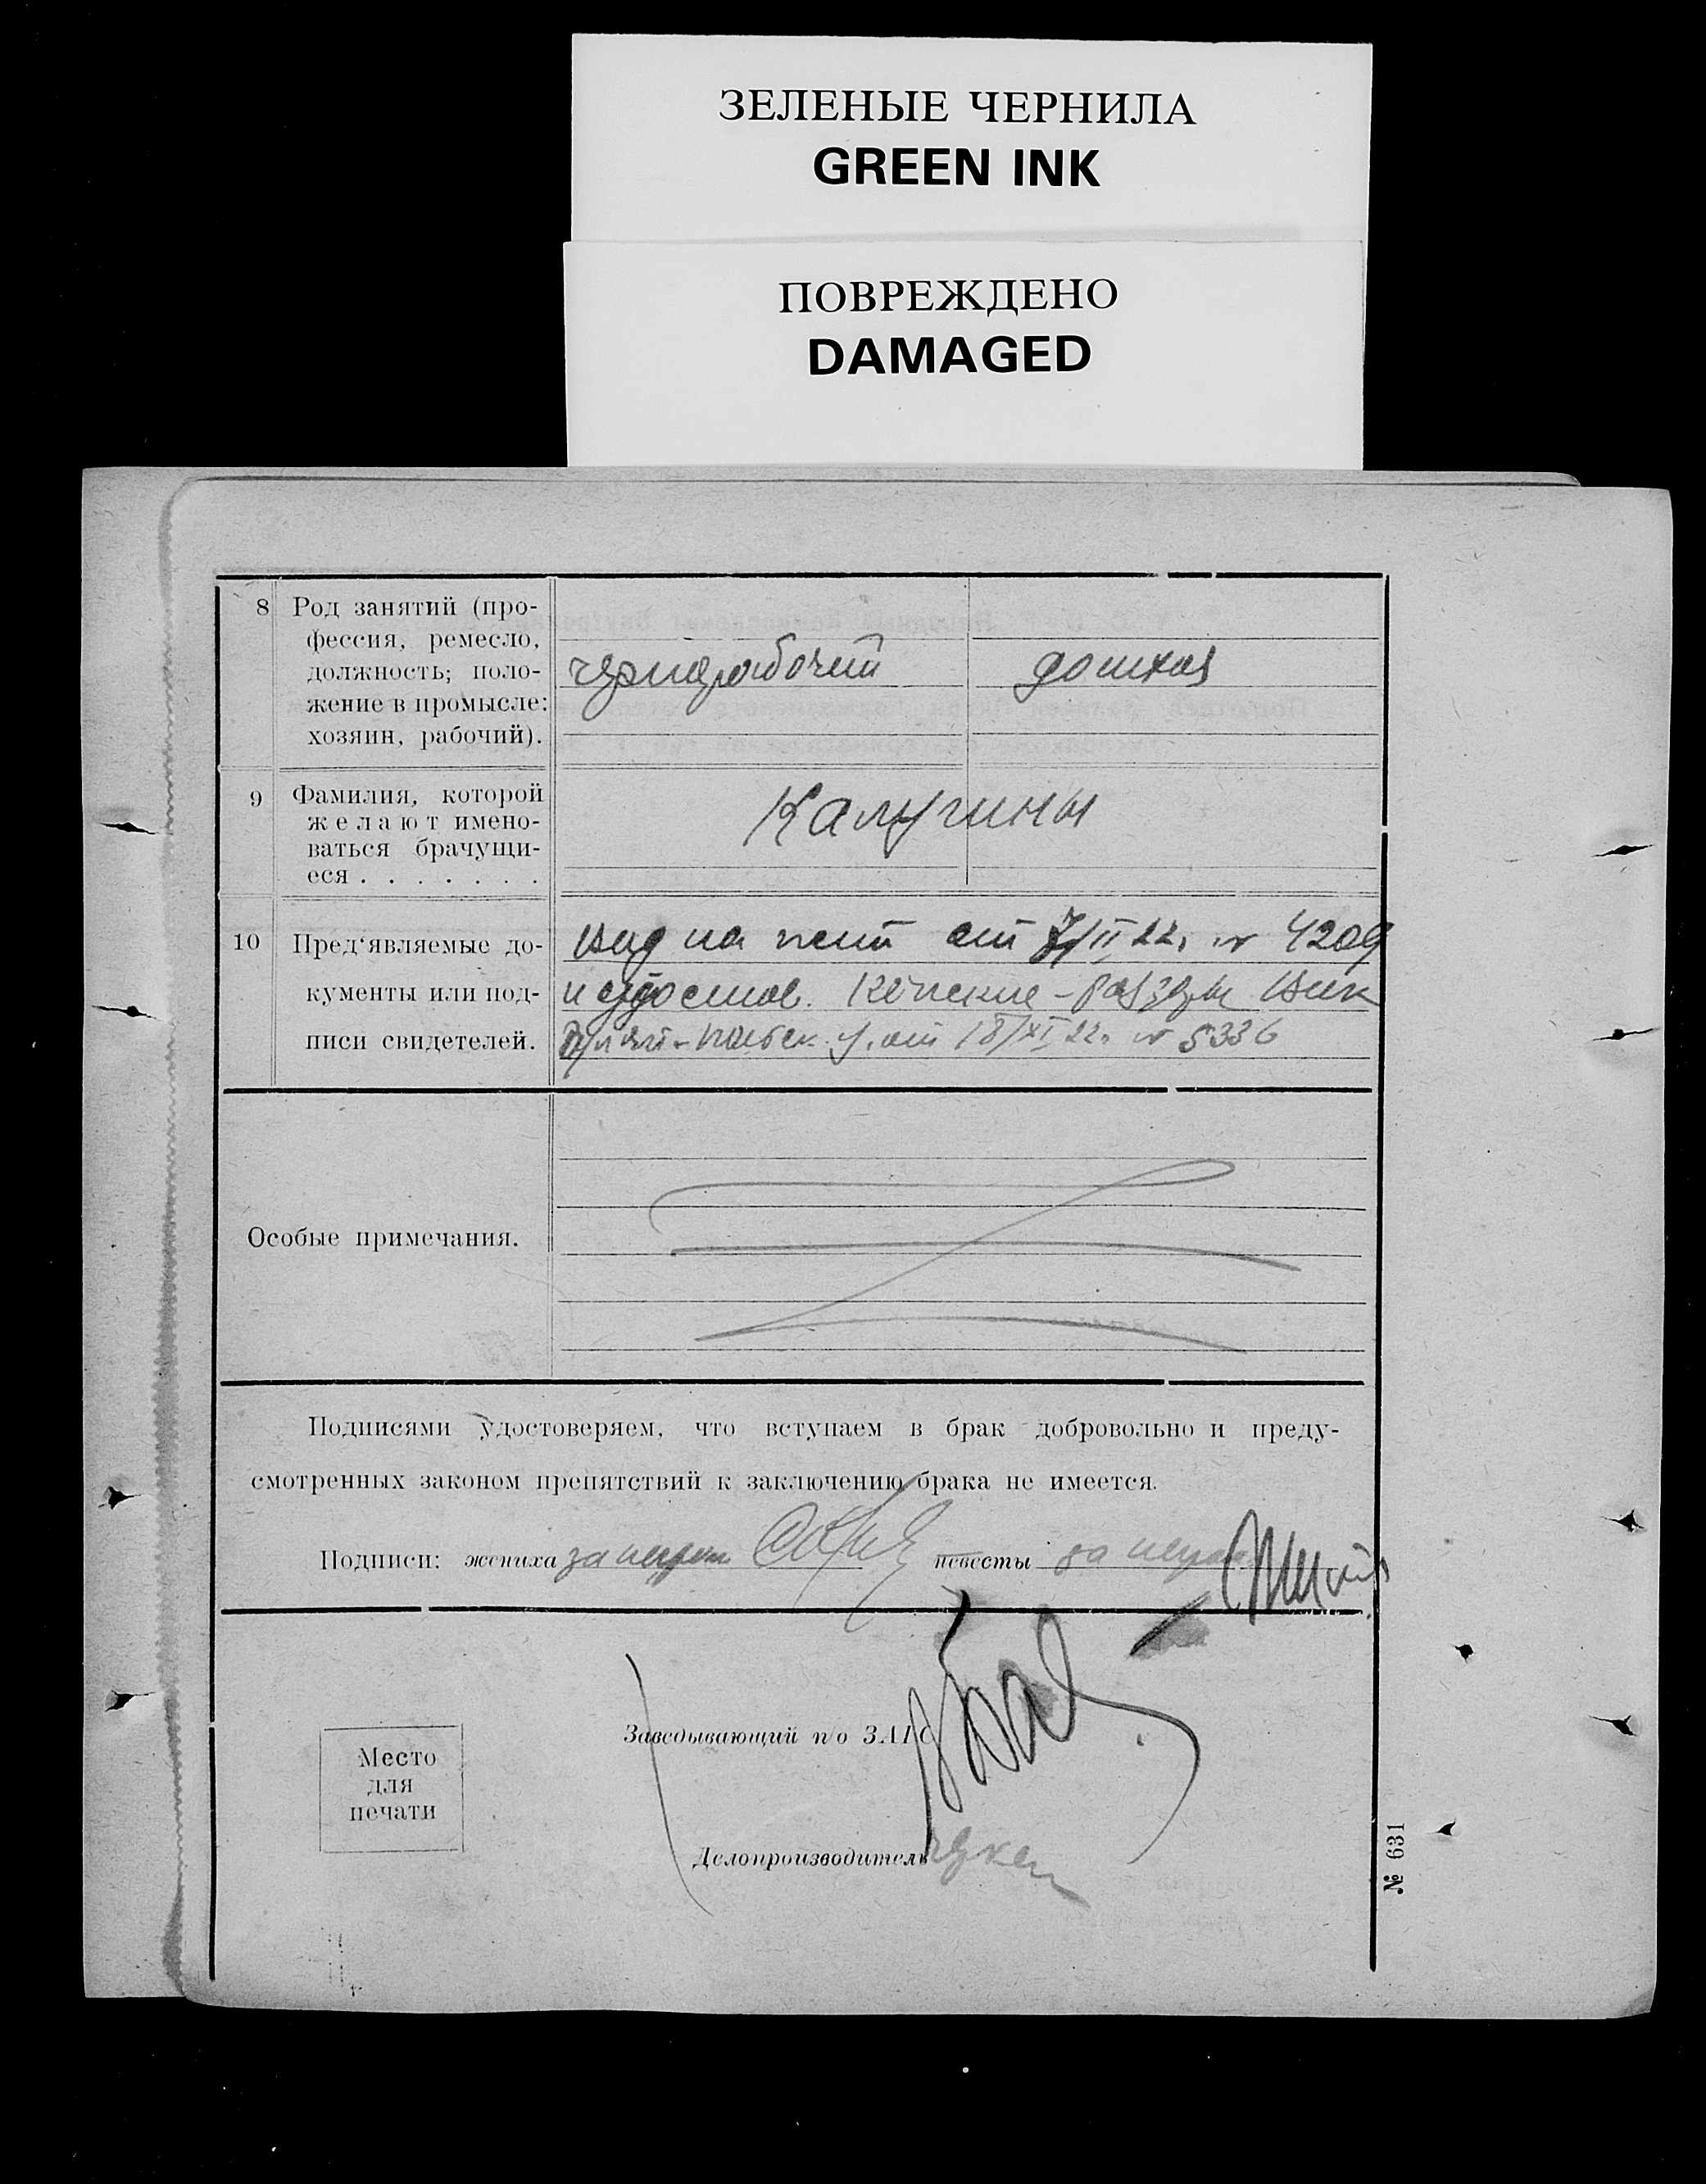 ЗЕЛЕНЫЕ ЧЕРНИЛА
GREEN INK
ПОВРЕЖДЕНО
DAMAGED
8 Род занятий (про-
фессия, ремесло,
должность; поло-
жение в промысле:
хозяин, рабочий).
чернорабочий
9 Фамилия, которой
желают имено-
ваться брачущи-
еся . . . . . . .
Калугины
10 Пред‘являемые до-
кументы или под-
писи свидетелей.
вид на жит от 7/II 22 г. № 4209
и удостов.
от 18/XI 22 г. № 5336
Особые примечания.
Подписями удостоверяем, что вступаем в брак добровольно и преду-
смотренных законом препятствий к заключению брака не имеется.
Подписи: жениха за негр невесты за негр
Заведывающий п/о ЗАГС
Место
для
печати
Делопроизводитель
№ 631